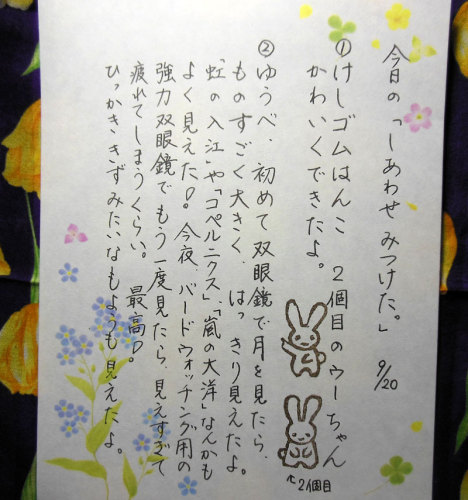 今日の「しあわせみつけた。」 9/20
①けしゴムはんこ 2個目のウーちゃん
かわいくできたよ。
②ゆうべ、初めて双眼鏡で月を見たら、
ものすごく大きく、はっきり見えたよ。
「虹の入江」や「コペルニクス」、「嵐の大洋」なんかも
よく見えた!。今夜、バードウォッチング用の
強力双眼鏡でもう一度見たら、見えすぎて
疲れてしまうくらい。最高!。
ひっかききずみたいなもようも見えたよ。
↑2個目